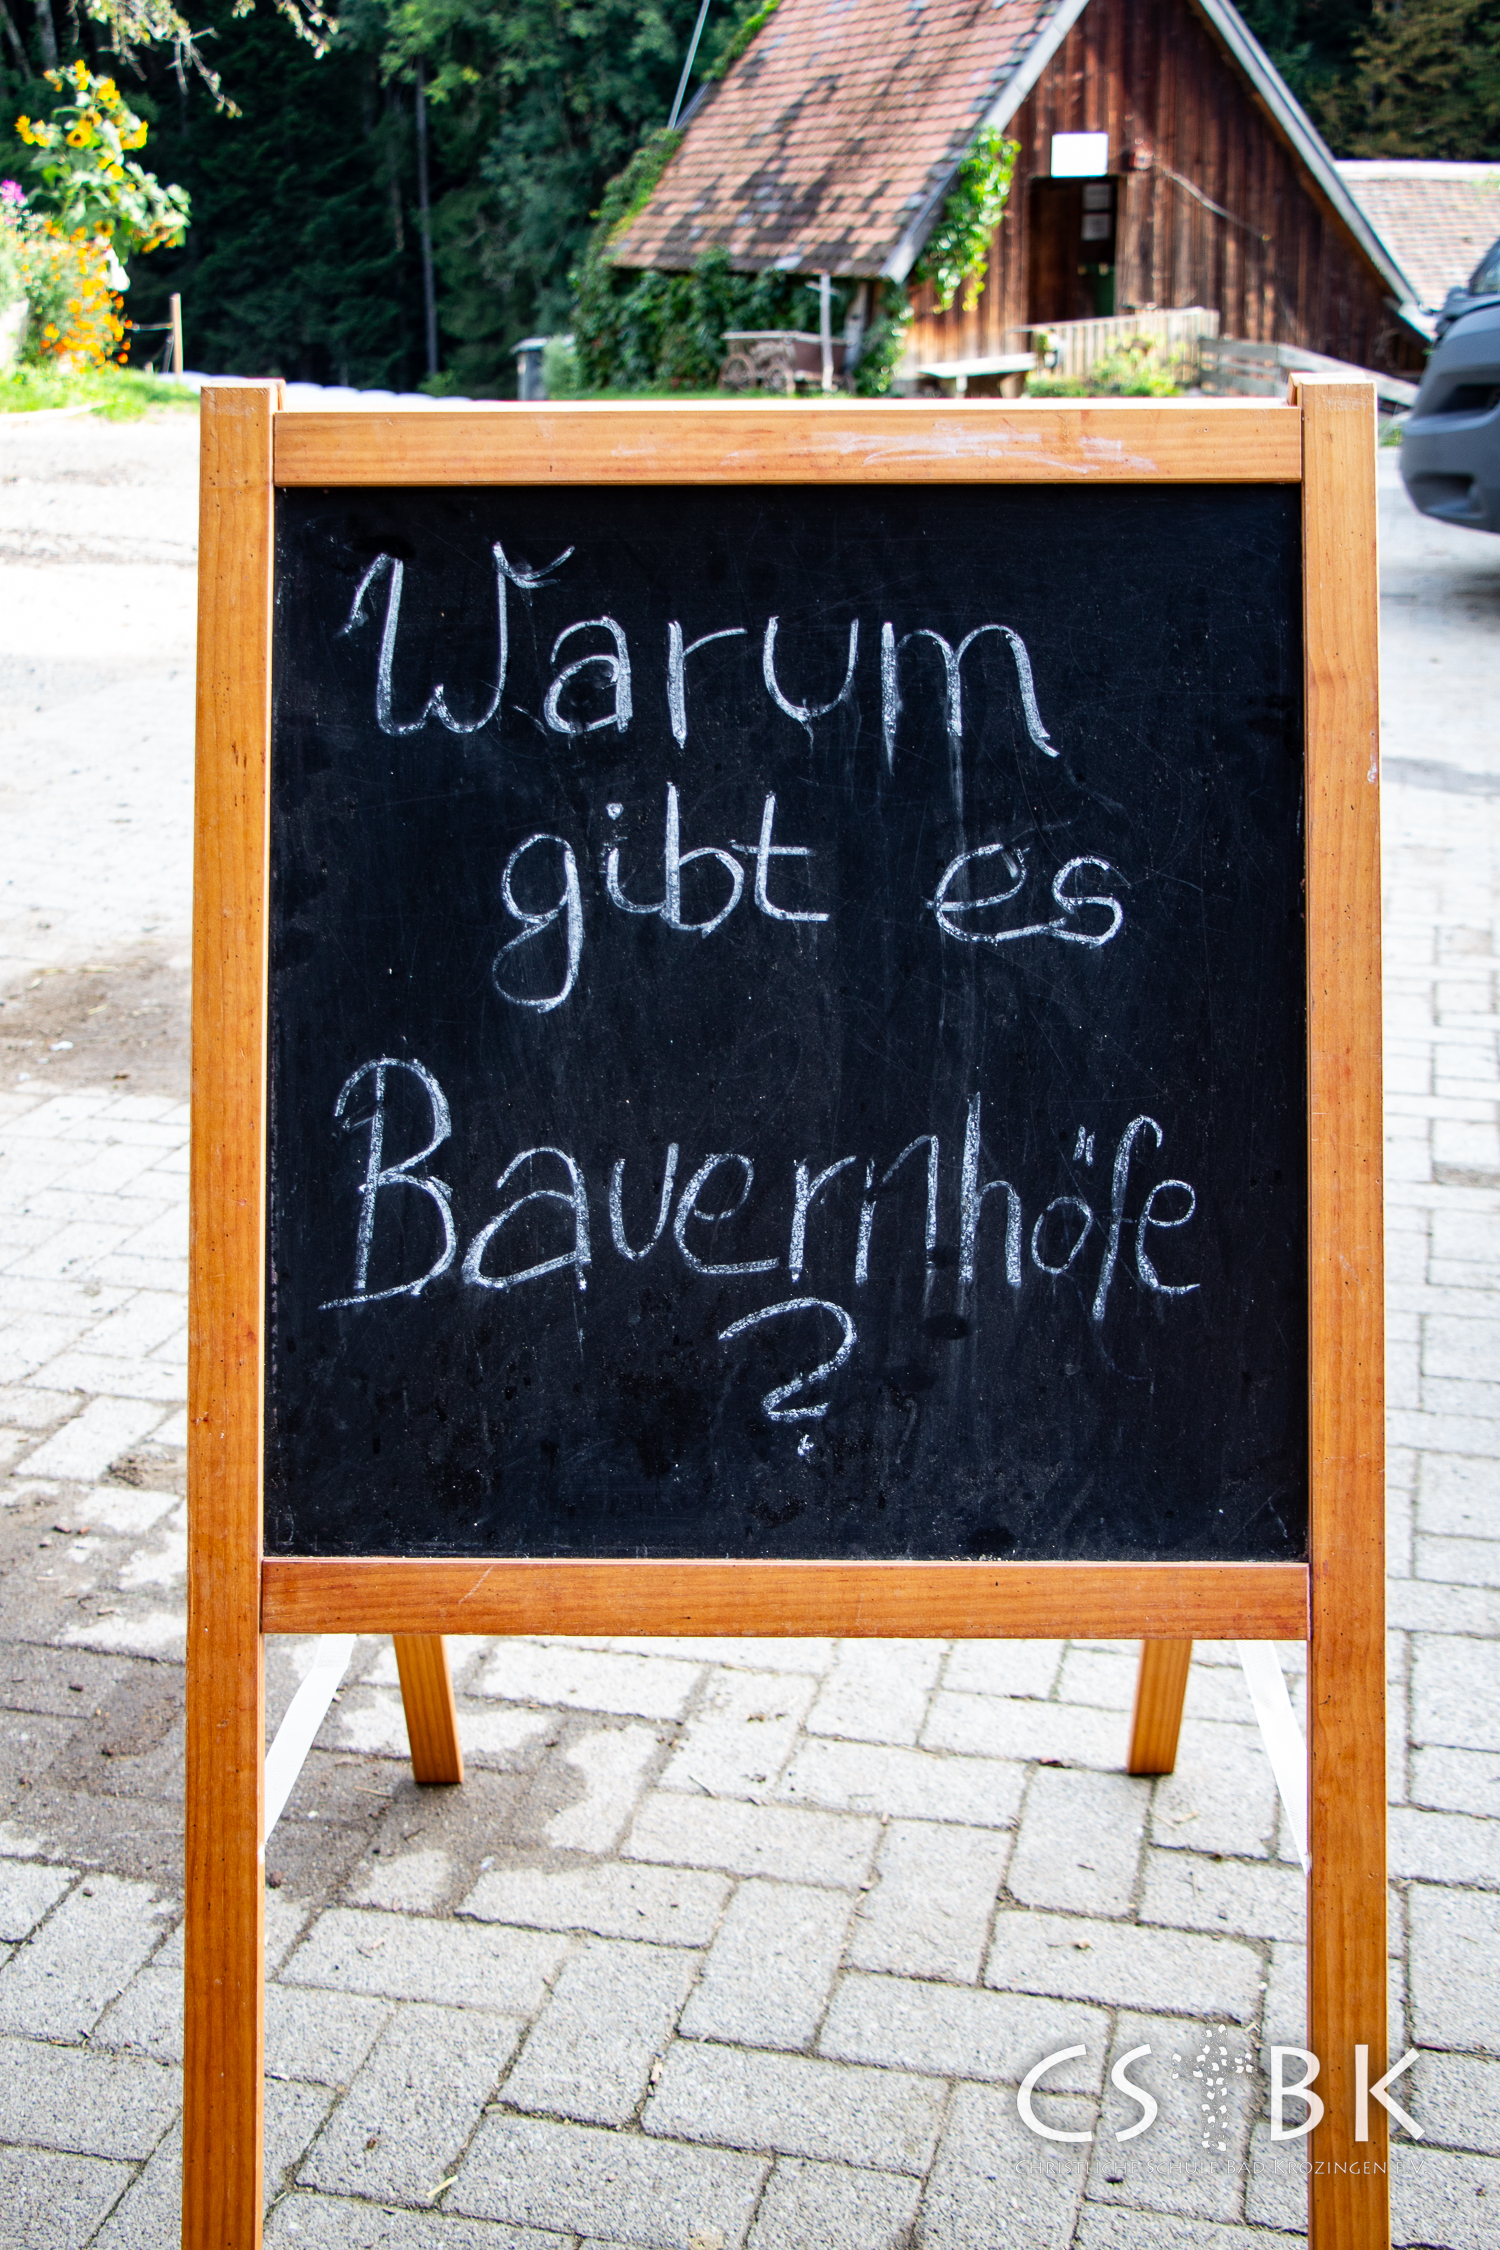 Warum
gibt es
Bauernhöfe
?
CS BK
Christliche Schule Bad Krozingen e.V.